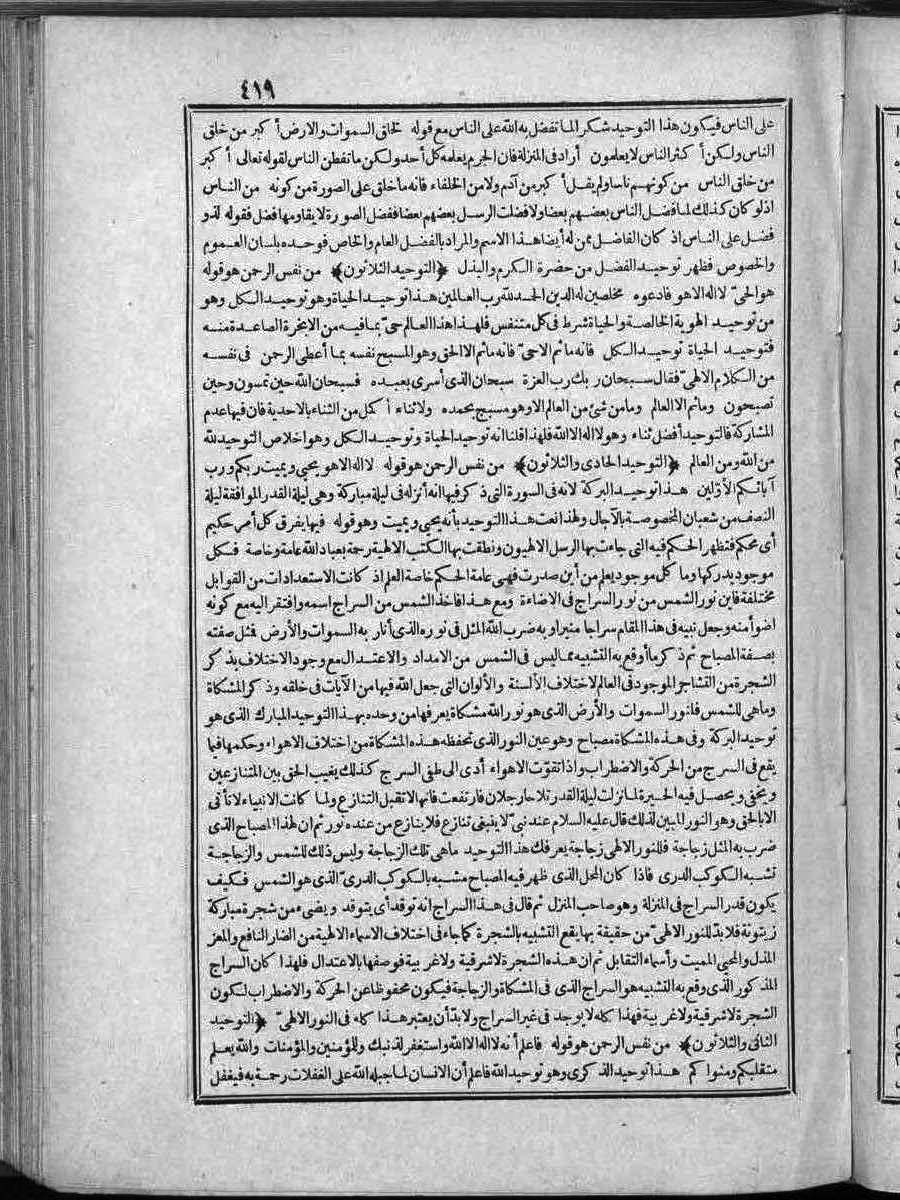 ٤١٩
على الناس فيكون هذا التوحيد شكرا لما تفضل به الله على الناس مع قوله لخلق السموات والارض أكبر من خلق
الناس ولكن أكثر الناس لا يعلمون أراد فى المنزلة فان الجرم يعلمه كل أحد ولكن ما تفطن الناس لقوله تعالى أكبر
من خلق الناس من كونهم ناسا ولم يقل أكبر من آدم ولا من الخلفاء فانه ما خلق على الصورة من كونه من الناس
اذ لو كان كذلك لما فضل الناس بعضهم بعضا ولا فضلت الرسل بعضهم بعضا ففضل الصورة لا يقاومها فضل فقوله لذو
فضل على الناس اذ كان الفاضل ممن له أيضا هذا الاسم والمراد بالفضل العام والخاص فوحده بلسان العموم
والخصوص فظهر توحيد الفضل من حضرة الكرم والبذل ﴿التوحيد الثلاثون﴾ من نفس الرحمن هو قوله
هو الحىّ لا اله الا هو فادعوه مخلصين له الدين الحمد لله رب العالمين هذا توحيد الحياة وهو توحيد الكل وهو
من توحيد الهوية الخالصة والحياة شرط فى كل متنفس فلهذا هذا العالم حىّ بما فيه من الابخرة الصاعدة منه
فتوحيد الحياة توحيد الكل فانه ما ثم الا حىّ فانه ما ثم الا الحق وهو المسبح نفسه بما أعطى الرحمن فى نفسه
من الكلام الالهىّ فقال سبحان ربك رب العزة سبحان الذى أسرى بعبده فسبحان الله حين تمسون وحين
تصبحون وما ثم الا العالم وما من شئ من العالم الا وهو مسبح بحمده ولا ثناء أكمل من الثناء بالاحدية فان فيها عدم
المشاركة فالتوحيد أفضل ثناء وهو لا اله الا الله فلهذا قلنا انه توحيد الحياة وتوحيد الكل وهو اخلاص التوحيد لله
من الله ومن العالم ﴿التوحيد الحادى والثلاثون﴾ من نفس الرحمن هو قوله لا اله الا هو يحيى ويميت ربكم ورب
آبائكم الأوّلين هذا توحيد البركة لانه فى السورة التى ذكر فيها انه أنزله فى ليلة مباركة وهى ليلة القدر الموافقة ليلة
النصف من شعبان المخصوصة بالآجال ولهذا نعت هذا التوحيد بأنه يحيى ويميت وهو قوله فيها يفرق كل أمر حكيم
أى محكم فتظهر الحكم فيه التى جاءت بها الرسل الالهيون ونطقت بها الكتب الالهية رحمة بعباد الله عامة وخاصة فكل
موجود يدركها وما كل موجود يعلم من أين صدرت فهى عامة الحكم خاصة العلم اذ كانت الاستعدادات من القوابل
مختلفة فاين نور الشمس من نور السراج فى الاضاءة ومع هذا فاخذ الشمس من السراج اسمه وافتقر اليه مع كونه
اضوأ منه وجعل نبيه فى هذا المقام سراجا منيرا وبه ضرب الله المثل فى نوره الذى أنار به السموات والأرض فمثل صفته
بصفة المصباح ثم ذكر ما أوقع به التشبيه مما ليس فى الشمس من الامداد والاعتدال مع وجود الاختلاف بذكر
الشجرة من التشاجر الموجود فى العالم لاختلاف الألسنة والألوان التى جعل الله فيها من الآيات فى خلقه وذكر المشكاة
وما هى للشمس فلنور السموات والأرض الذى هو نور الله مشكاة يعرفها من وحده بهذا التوحيد المبارك الذى هو
توحيد البركة وفى هذه المشكاة مصباح وهو عين النور الذى تحفظه هذه المشكاة من اختلاف الاهواء وحكمها فيما
يقع فى السرج من الحركة والاضطراب واذا تقوّت الاهواء أدى الى طفى السرج كذلك يغيب الحق بين المتنازعين
ويخفى ويحصل فيه الحيرة لما نزلت ليلة القدر تلاحا رجلان فارتفعت فانها لا تقبل التنازع ولما كانت الانبياء لا تأتى
الا بالحق وهو النور المبين لذلك قال عليه السلام عند نبىّ لا ينبغى تنازع فلا ينازع من عنده نور ثم ان لهذا المصباح الذى
ضرب به المثل زجاجة فللنور الالهى زجاجة يعرفك هذا التوحيد ما هى تلك الزجاجة وليس ذلك للشمس والزجاجة
تشبه الكوكب الدرى فاذا كان المحل الذى ظهر فيه المصباح مشبه بالكوكب الدرىّ الذى هو الشمس فكيف
يكون قدر السراج فى المنزلة وهو صاحب المنزل ثم قال فى هذا السراج انه توقد أى يتوقد ويضىء من شجرة مباركة
زيتونة فلا بدّ للنور الالهىّ من حقيقة بها يقع التشبيه بالشجرة كما جاء فى اختلاف الاسماء الالهية من الضار النافع والمعز
المذل والمحيى المميت وأسماء التقابل ثم ان هذه الشجرة لا شرقية ولا غربية فوصفها بالاعتدال فلهذا كان السراج
المذكور الذى وقع به التشبيه هو السراج الذى فى المشكاة والزجاجة فيكون محفوظا عن الحركة والاضطراب لكون
الشجرة لا شرقية ولا غربية فهذا كله لا يوجد فى غير السراج ولا بدّ أن يعتبر هذا كله فى النور الالهىّ ﴿التوحيد
الثانى والثلاثون﴾ من نفس الرحمن هو قوله فاعلم أنه لا اله الا الله واستغفر لذنبك وللمؤمنين والمؤمنات والله يعلم
متقلبكم ومثواكم هذا توحيد الذكرى وهو توحيد الله فاعلم أن الانسان لما جبله الله على الغفلات رحمة به فيغفل